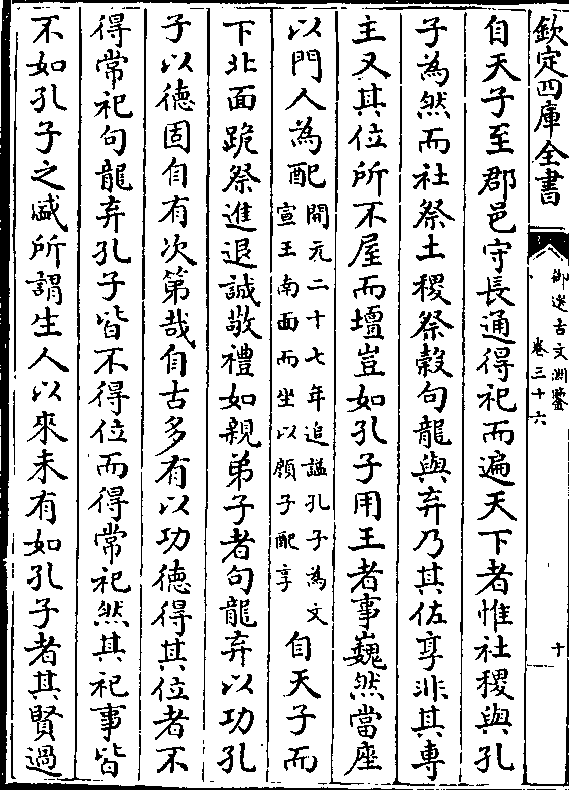 欽定四庫全書
御選古文淵鑒
卷三十六
十
自天子至郡邑守長通得祀而遍天下者惟社稷與孔
子為然而社祭土稷祭榖句龍與弃乃其佐享非其專
主又其位所不屋而壇豈如孔子用王者事巍然當座
以門人為配開元二十七年追謚孔子為文宣王南面而坐以顔子配享自天子而
下北面跪祭進退誠敬禮如親弟子者句龍弃以功孔
子以德固自有次第哉自古多有以功德得其位者不
得常祀句龍弃孔子皆不得位而得常祀然其祀事皆
不如孔子之盛所謂生人以來未有如孔子者其賢過